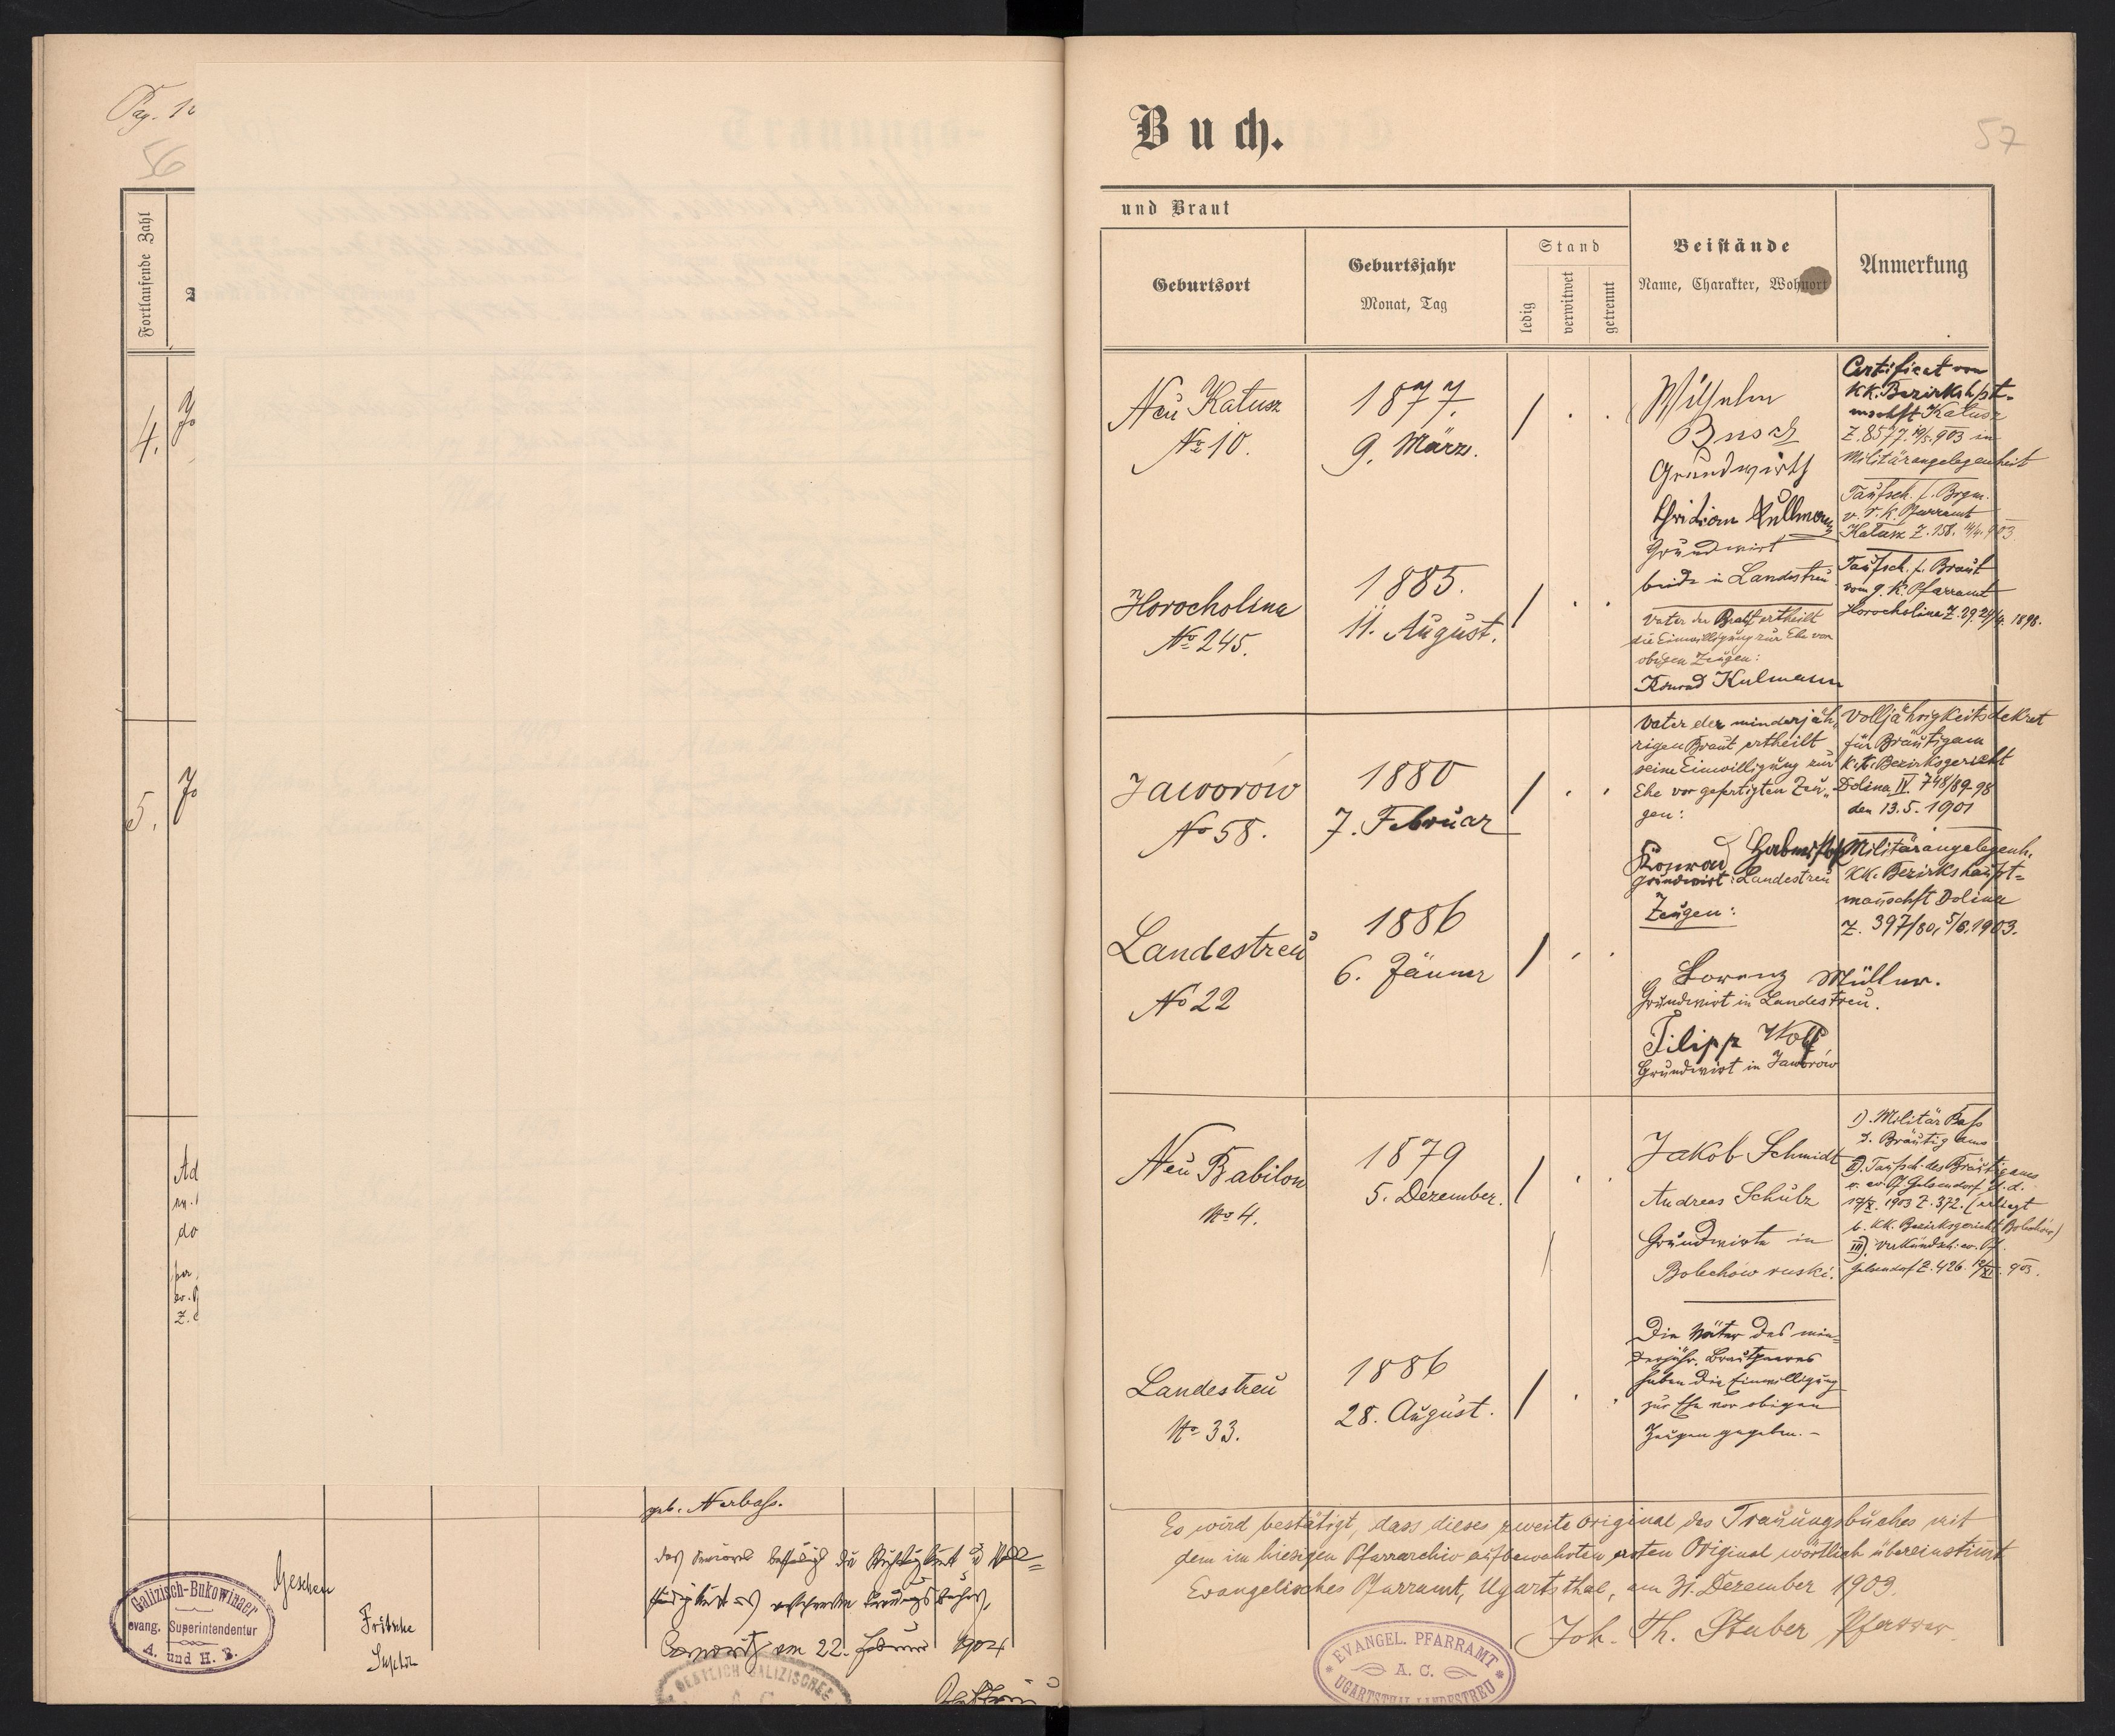 Pag. 10
56
Fortlaufende Zahl
4.
5.
Ad
do
Z.
geb. Nerbass.
Geschen
Galizisch-Bukowinaer
evang. Superintendentur
A. und H. B.
Fritsche
Suptdt
am 22. Februar 1904
OESTLICH GALIZISCHES
A. C.
Buch.
57
und Braut
Geburtsort
Geburtsjahr
Monat, Tag
Stand
ledig
verwitwet
getrennt
Beistände
Name, Charakter, Wohnort
Anmerkung
Neu Kałusz
№ 10.
1877.
9. März.
Wilhelm
Busch
Grundwirth
Christian Kullmann
Grundwirt
beide in Landestreu
Vater der Braut ertheilt
die Einwilligung zur Ehe vor
obigen Zeugen:
Konrad Kulmann
Certificat von
KK. Bezirkshpt-
mschft Kałusz
Z. 8577. 19/5. 903 in
Militärangelegenheit
Taufsch. f. Brgm.
v. r. k. Pfarramt
Kałusz Z. 158. 14/4. 903.
Taufsch. f. Braut
vom g. k. Pfarramt
Horocholina Z. 29. 24/4. 1898.
Horocholina
№ 245.
1885.
11. August.
Jaworów
№ 58.
1880
7. Februar
Vater der minderjäh-
rigen Braut ertheilt
seine Einwilligung zur
Ehe vor gefertigten Zeu-
gen:
Konrad
Grundwirt: Landestreu
Zeugen:
Lorenz Müller.
Grundwirt in Landestreu.
Filipp Wolf
Grundwirt in Jaworów
Volljährigkeitsdekret
für Bräutigam
k. k. Bezirksgericht
Dolina IV. 748/89-98
den 13. 5. 1901
Militärangelegenh.
KK. Bezirkshaupt-
mannschft Dolina
Z. 397/80, 5/6. 1903.
Landestreu
No 22
1886
6. Jänner
Neu Babilon
№ 4.
1879
5. Dezember.
Jakob Schmidt
Andreas Schulz
Grundwirte in
Bolechów ruski.
Die Väter des min-
derjähr. Brautpaares
haben die Einwilligung
zur Ehe vor obigen
Zeugen gegeben. -
I). Militär Pass
d. Bräutigams
II). Taufsch. des Bräutigams
v. ev. Pf. Gelsendorf d. d.
17/X. 1903 Z. 372. (erliegt
b. KK. Bezirksgericht Bolechów)
III). Verkündsch: ev. Pf.
Gelsendorf Z. 426. 12/XI. 903.
Landestreu
№ 33.
1886
28. August.
Es wird bestätigt, dass dieses zweite Original des Trauungsbuches mit
dem im hiesigen Pfarrarchiv aufbewahrten ersten Original wörtlich übereinstimt
Evangelisches Pfarramt, Ugartsthal, am 31. Dezember 1903.
Joh. Th. Stuber Pfarrer
EVANGEL. PFARRAMT
A. C.
UGARTSTHAL LANDESTREU